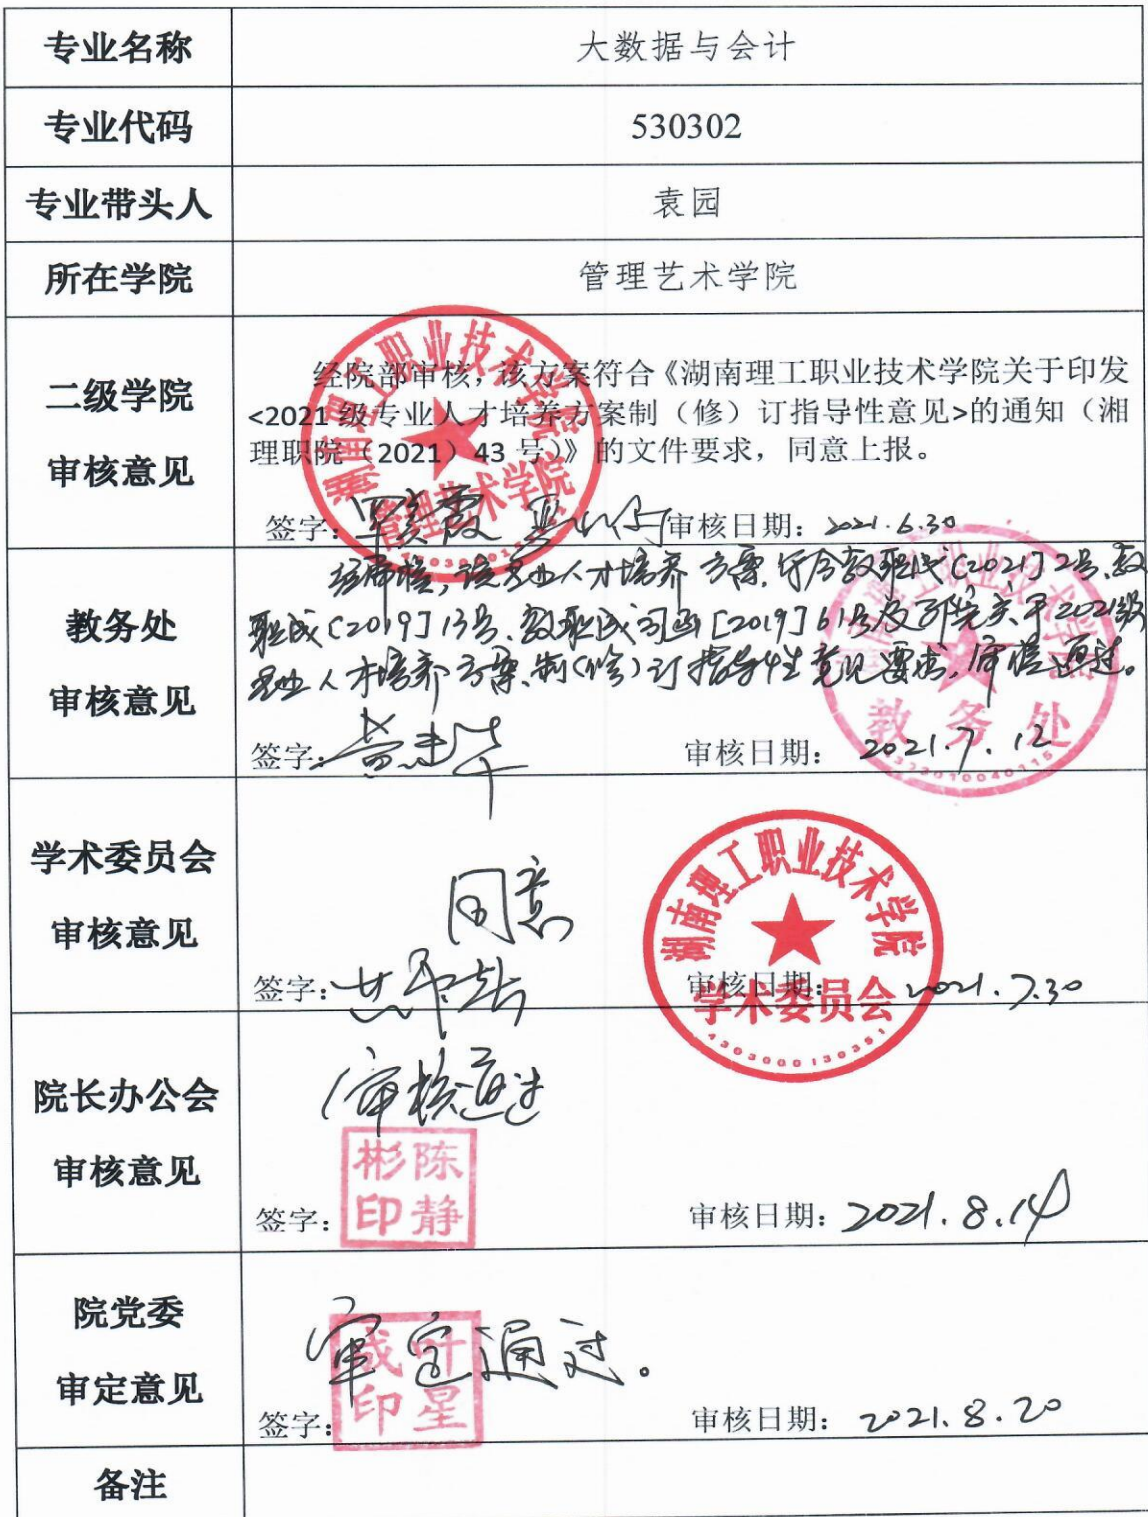 专业名称 大数据与会计
专业代码 530302
专业带头人 袁园
所在学院 管理艺术学院
二级学院
审核意见
经院部审核，该方案符合《湖南理工职业技术学院关于印发
<2021级专业人才培养方案制（修）订指导性意见>的通知（湘
理职院（2021）43号）》的文件要求，同意上报。
签字： 审核日期：2021.6.30
湖南理工职业技术学院
管理艺术学院
教务处
审核意见
经审核，该专业人才培养方案，符合教职成[2021]2号、教
职成[2019]13号、教职成司函[2019]61号及我院关于2021级
专业人才培养方案制(修)订指导性意见要求，审核通过。
签字： 审核日期：2021.7.12
湖南理工职业技术学院
教务处
学术委员会
审核意见
同意
签字： 审核日期：2021.7.30
湖南理工职业技术学院
学术委员会
4303000130351
院长办公会
审核意见
审核通过
陈静彬印
签字： 审核日期：2021.8.14
院党委
审定意见
审定通过。
叶星成印
签字： 审核日期：2021.8.20
备注